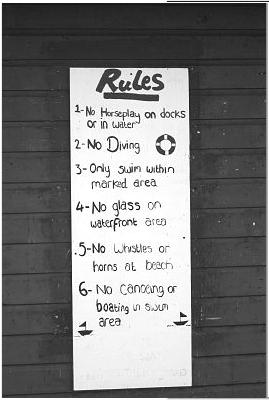 Rules
1- No Horseplay on docks
or in water
2- No Diving
3- Only swim within
marked area
4- No glass on
waterfront area
5- No Whistles or
horns at beach
6- No Canoeing or
boating in swim
area